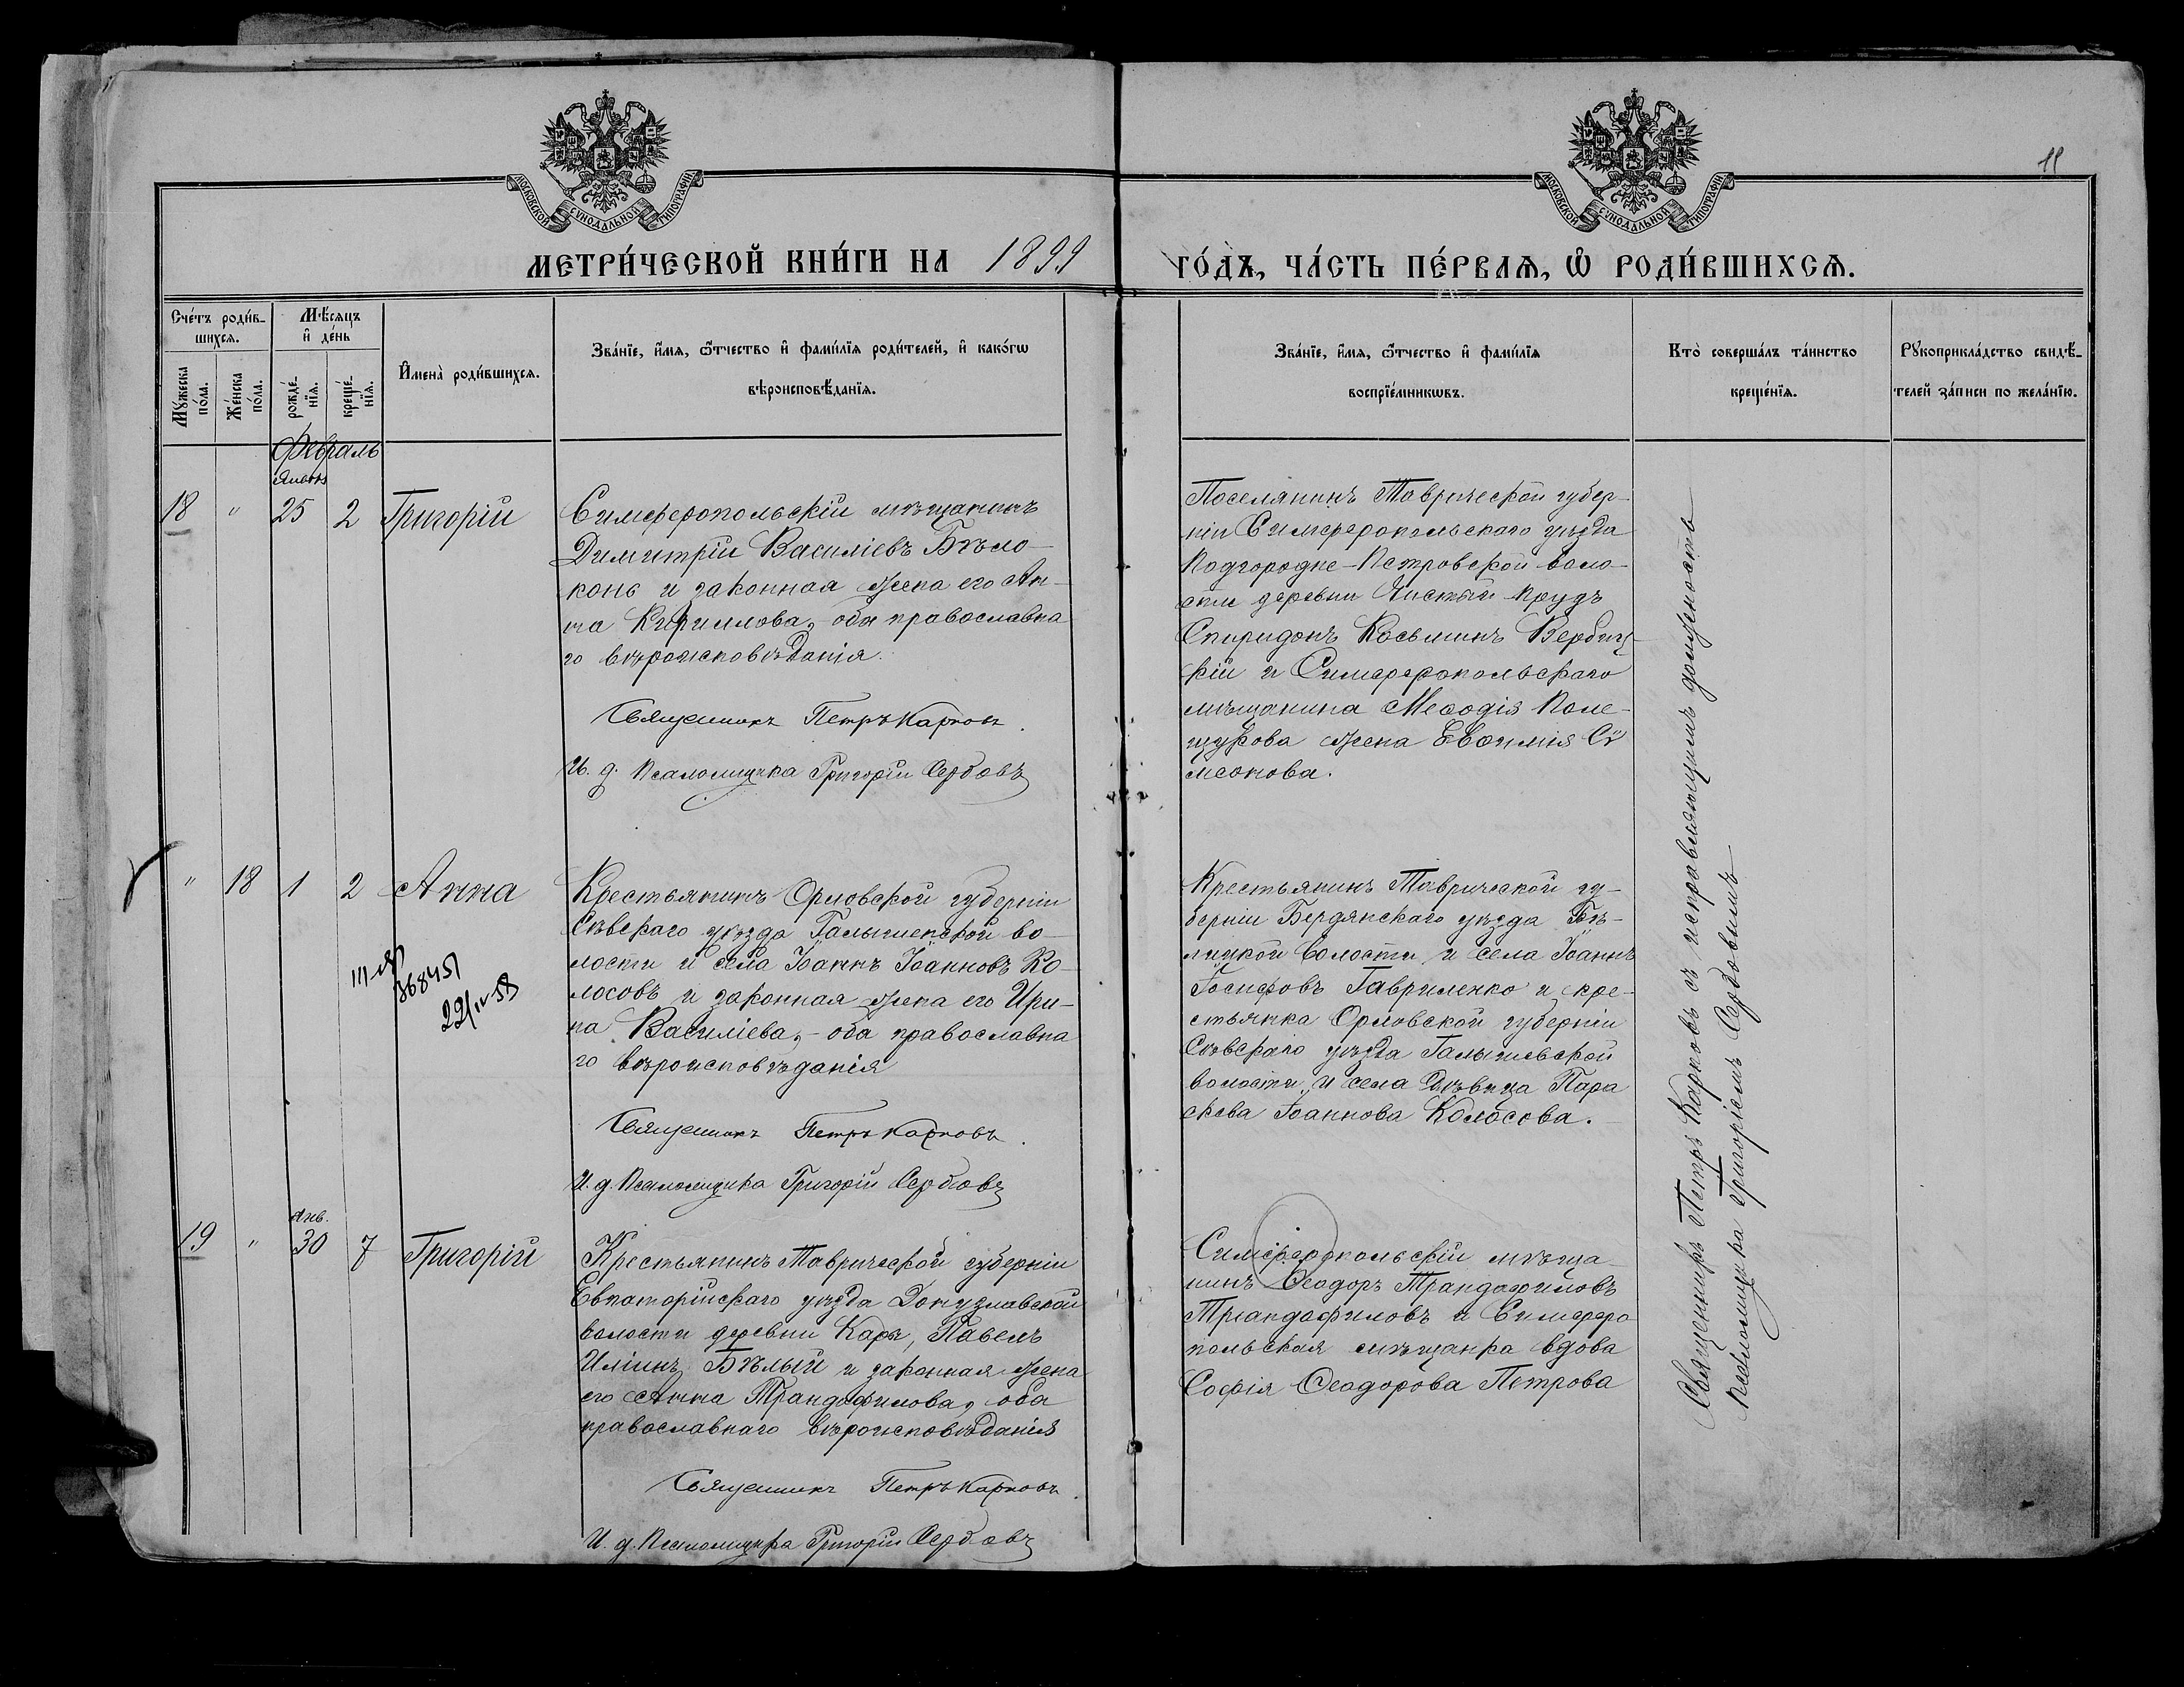 МОСКОВСКОЙ СѴНОДАЛЬНОЙ ТИПОГРАФІИ
МОСКОВСКОЙ СѴНОДАЛЬНОЙ ТИПОГРАФІИ
11
МЕТРИ́ЧЕСКОЙ КНИ́ГИ НА 1899
ГО́ДЪ, ЧА́СТЬ ПЕ́РВАѦ, Ѽ РОДИ́ВШИХСѦ.
Сче́тъ роди́в-
шихсѧ.
Мꙋжеска по́ла.
Же́нска по́ла.
Мѣ́сѧцъ
и҆ де́нь
рожде́-
нїѧ.
креще́-
нїѧ.
И҆мена̀ роди́вшихсѧ.
Зва́нїе, и҆́мѧ, ѻ҆́тчество и҆ фами́лїѧ роди́телей, и҆ како́гѡ
вѣроисповѣ́данїѧ.
Зва́нїе, и҆́мѧ, ѻ҆́тчество и҆ фами́лїѧ
воспрїе́мникѡвъ.
Кто̀ соверша́лъ та́инство
креще́нїѧ.
Рꙋкоприкла́дство свидѣ́-
телей за́писи по жела́нїю.
Февраль
Январь
18 " 25 2 Григорій
Симферопольскій мѣщанинъ
Димитрій Василіевъ Бѣло-
конь и законная жена его Ан-
на Кириллова, оба православна
го вѣроисповѣданія.
Священникъ Петръ Карповъ.
И. д. Псаломщика Григорій Сербовъ
Поселянинъ Таврической губер-
ніи Симферопольскаго уѣзда
Подгородне-Петровской воло-
сти деревни Чистый-Прудъ
Спиридонъ Косьминъ Вербиц-
кій и Симферопольскаго
мѣщанина Меѳодія Поле-
щукова жена Евѳимія Си
меонова.
" 18 1 2 Анна
Крестьянинъ Орловской губерніи
Сѣвскаго уѣзда Галышенской во-
лости и села Іоаннъ Іоанновъ Ко-
лосовъ и законная жена его Ири-
на Василіева, - оба православна
го вѣроисповѣданія
Священникъ Петръ Карповъ.
И. д. Псаломщика Григорій Сербовъ
Крестьянинъ Таврической гу-
берніи Бердянскаго уѣзда
волости и села Іоаннъ
Іосифовъ Гавриленко и кре-
стьянка Орловской губерніи
Сѣвскаго уѣзда Галышевской
волости и села дѣвица Пара
скева Іоаннова Колосова.
Янв.
19 " 30 7 Григорій
Крестьянинъ Таврической губерніи
Евпаторійскаго уѣзда Донузлавской
волости деревни Кары, Павелъ
Иліинъ Бѣлый и законная жена
его Анна Трандафилова, оба
православнаго вѣроисповѣданія
Священникъ Петръ Карповъ.
И. д. Псаломщика Григорій Сербовъ
Симферопольскій мѣща-
нинъ Ѳеодоръ Трандафиловъ
Тріандафиловъ и Симферо
польская мѣщанка вдова
Софія Ѳеодорова Петрова
Священникъ Петръ Карповъ съ исправляющимъ должность
Псаломщика Григоріемъ Сербовымъ